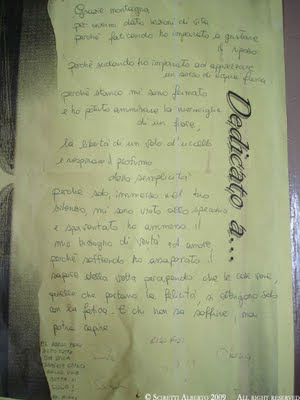 Grazie montagna
per avermi dato lezioni di vita
perché faticando ho imparato a gustare
il riposo
perché sudando ho imparato ad apprezzare
un sorso di acqua fresca
perché stanco mi sono fermato
e ho potuto ammirare la meraviglia
di un fiore,
la libertà di un volo d'uccelli
e respirare il profumo
della semplicità
perché solo, immerso nel tuo
silenzio, mi sono visto allo specchio
e spaventato ho ammesso il
mio bisogno di verità ed amore,
perché soffrendo ho assaporato il
sapore della vetta percependo che le cose vere,
quelle che portano la felicità, si ottengono solo
con la fatica. E chi non sa soffrire, mai
potrà capire
Dedicato a...
© SCIRETTI ALBERTO 2009 ALL RIGHTS RESERVED